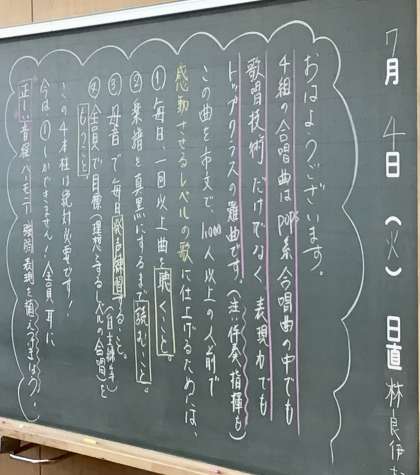 7月4日(火) 日直 林 良伊
おはようございます。
4組の合唱曲はPOPS系合唱曲の中でも
歌唱技術だけでなく、表現力でも
トップクラスの難曲です。(注:伴奏、指揮も)
この曲を市文で、1000人以上の人前で
感動させるレベルの歌に仕上げるためには、
①毎日、一回以上曲を聴くこと。
②楽譜を真黒にするまで読むこと。
③母音で毎日発声練習すること。
④全員で目標(理想とするレベルの合唱)を
もつこと
この4本柱は絶対必要です!
今は、①しかできません!全員、耳に
正しい音程、ハーモニー、強弱、表現を